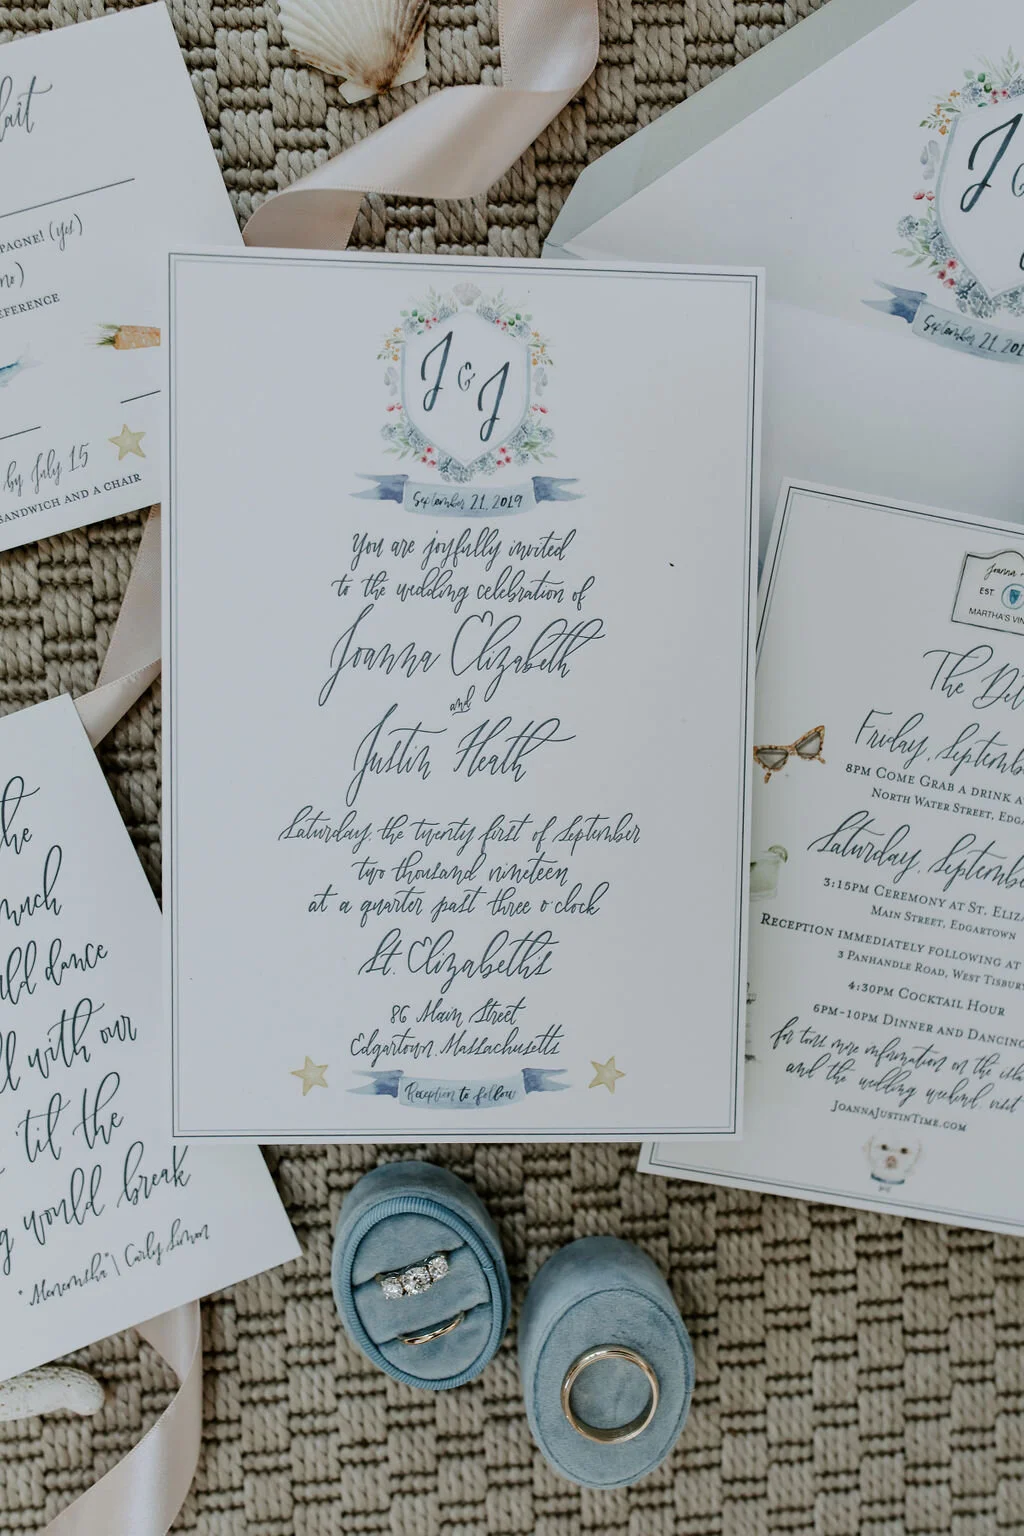 J & J
September 21, 2019
You are joyfully invited
to the wedding celebration of
Joanna Elizabeth
and
Justin Heath
Saturday, the twenty first of September
two thousand nineteen
at a quarter past three o'clock
St. Elizabeth's
86 Main Street
Edgartown, Massachusetts
Reception to follow
(yes)
by July 15
SANDWICH AND A CHAIR
the
much
dance
with our
'til the
would break
"Menemsha" | Carly Simon
J
September 21, 201
Joanna
EST
MARTHA'S VIN
The Det
Friday, Septemb
8PM COME GRAB A DRINK A
NORTH WATER STREET, EDGA
Saturday, Septembe
3:15PM CEREMONY AT ST. ELIZA
MAIN STREET, EDGARTOWN
RECEPTION IMMEDIATELY FOLLOWING AT
3 PANHANDLE ROAD, WEST TISBURY
4:30PM COCKTAIL HOUR
6PM-10PM DINNER AND DANCING
for tons more information on the isla
and the wedding weekend, visit
JOANNAJUSTINTIME.COM